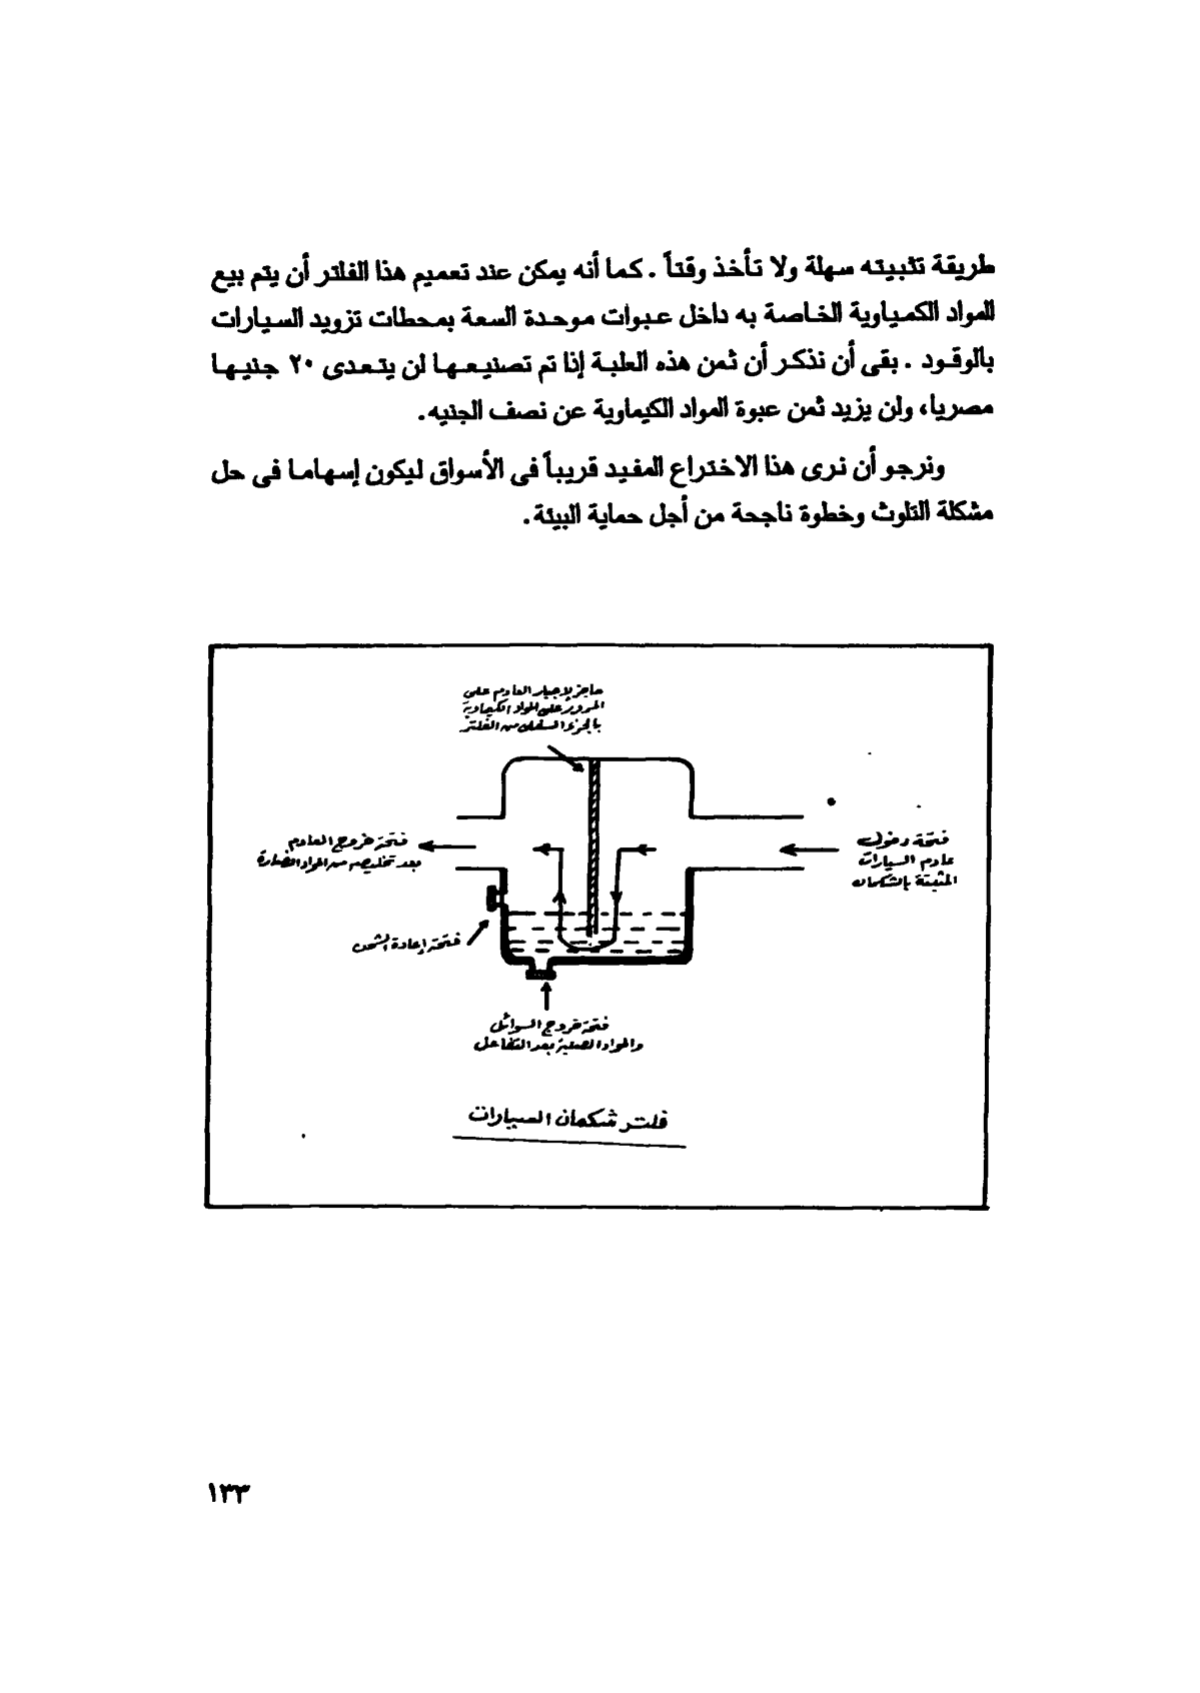 طريقة تثبيته سهلة ولا تأخذ وقتاً . كما أنه يمكن عند تعميم هذا الفلتر أن يتم بيع
المواد الكمياوية الخاصة به داخل عبوات موحدة السعة بمحطات تزويد السيارات
بالوقود . بقى أن نذكر أن ثمن هذه العلبة إذا تم تصنيعها لن يتعدى ٢٠ جنيها
مصريا، ولن يزيد ثمن عبوة المواد الكيماوية عن نصف الجنيه .
ونرجو أن نرى هذا الاختراع المفيد قريباً فى الأسواق ليكون إسهاما فى حل
مشكلة التلوث وخطوة ناجحة من أجل حماية البيئة .
حاجز لإجبار العادم على
المرور على المواد الكيماوية
بالجزء السفلى من الفلتر
فتحة دخول
عادم السيارات
المثبتة بالشكمان
فتحة خروج العادم
بعد تخليصه من المواد الضارة
فتحة إعادة الشحن
فتحة خروج السوائل
والمواد الصلبة بعد التفاعل
فلتر شكمان السيارات
١٣٣